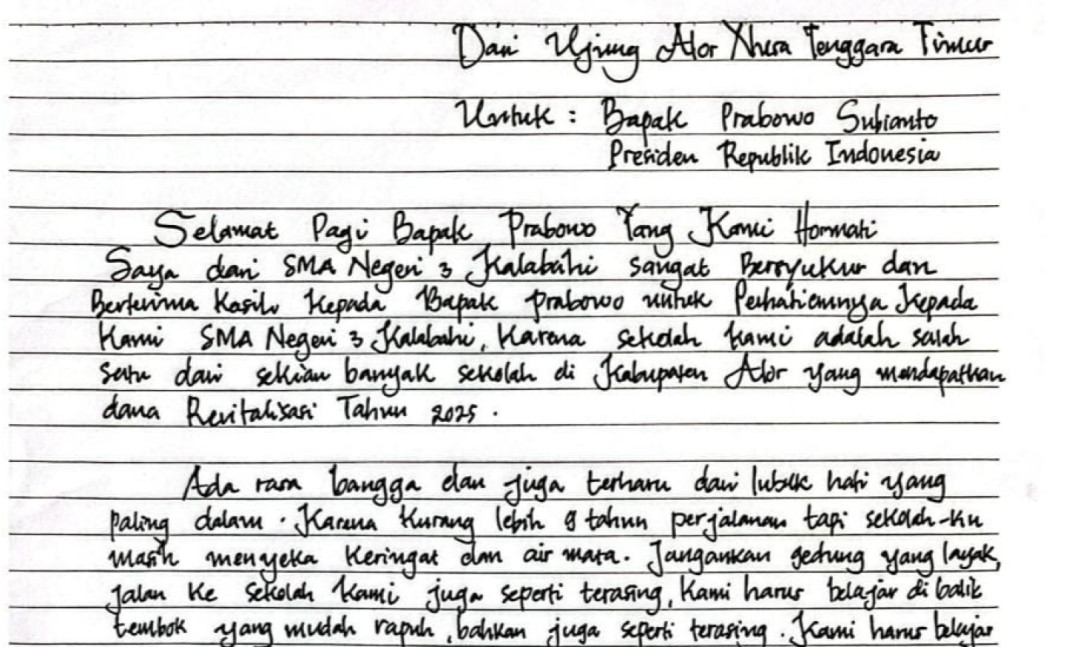 Dari Ujung Alor Nusa Tenggara Timur
Untuk : Bapak Prabowo Subianto
Presiden Republik Indonesia
Selamat Pagi Bapak Prabowo Yang Kami Hormati
Saya dari SMA Negeri 3 Kalabahi sangat Bersyukur dan
Berterima Kasih Kepada Bapak Prabowo untuk Perhatiannya Kepada
Kami SMA Negeri 3 Kalabahi, Karena sekolah kami adalah salah
satu dari sekian banyak sekolah di Kabupaten Alor yang mendapatkan
dana Revitalisasi Tahun 2025 .
Ada rasa bangga dan juga terharu dari lubuk hati yang
paling dalam . Karena Kurang lebih 8 tahun perjalanan tapi sekolah-ku
masih menyeka Keringat dan air mata. Jangankan gedung yang layak,
jalan Ke sekolah Kami juga seperti terasing, Kami harus belajar di balik
tembok yang mudah rapuh , bahkan juga seperti terasing . Kami harus belajar